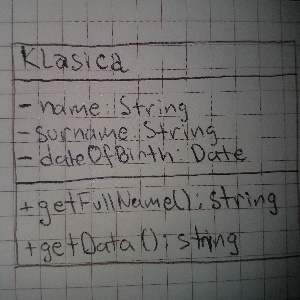 Klasica
- name: String
- surname: String
- dateOfBirth: Date
+ getFullName(): String
+ getData(): string